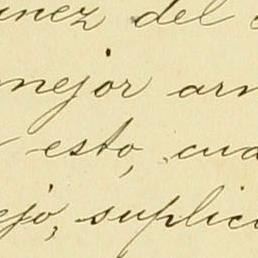 unez del
mejor arm
esto, cua
ejo, suplic